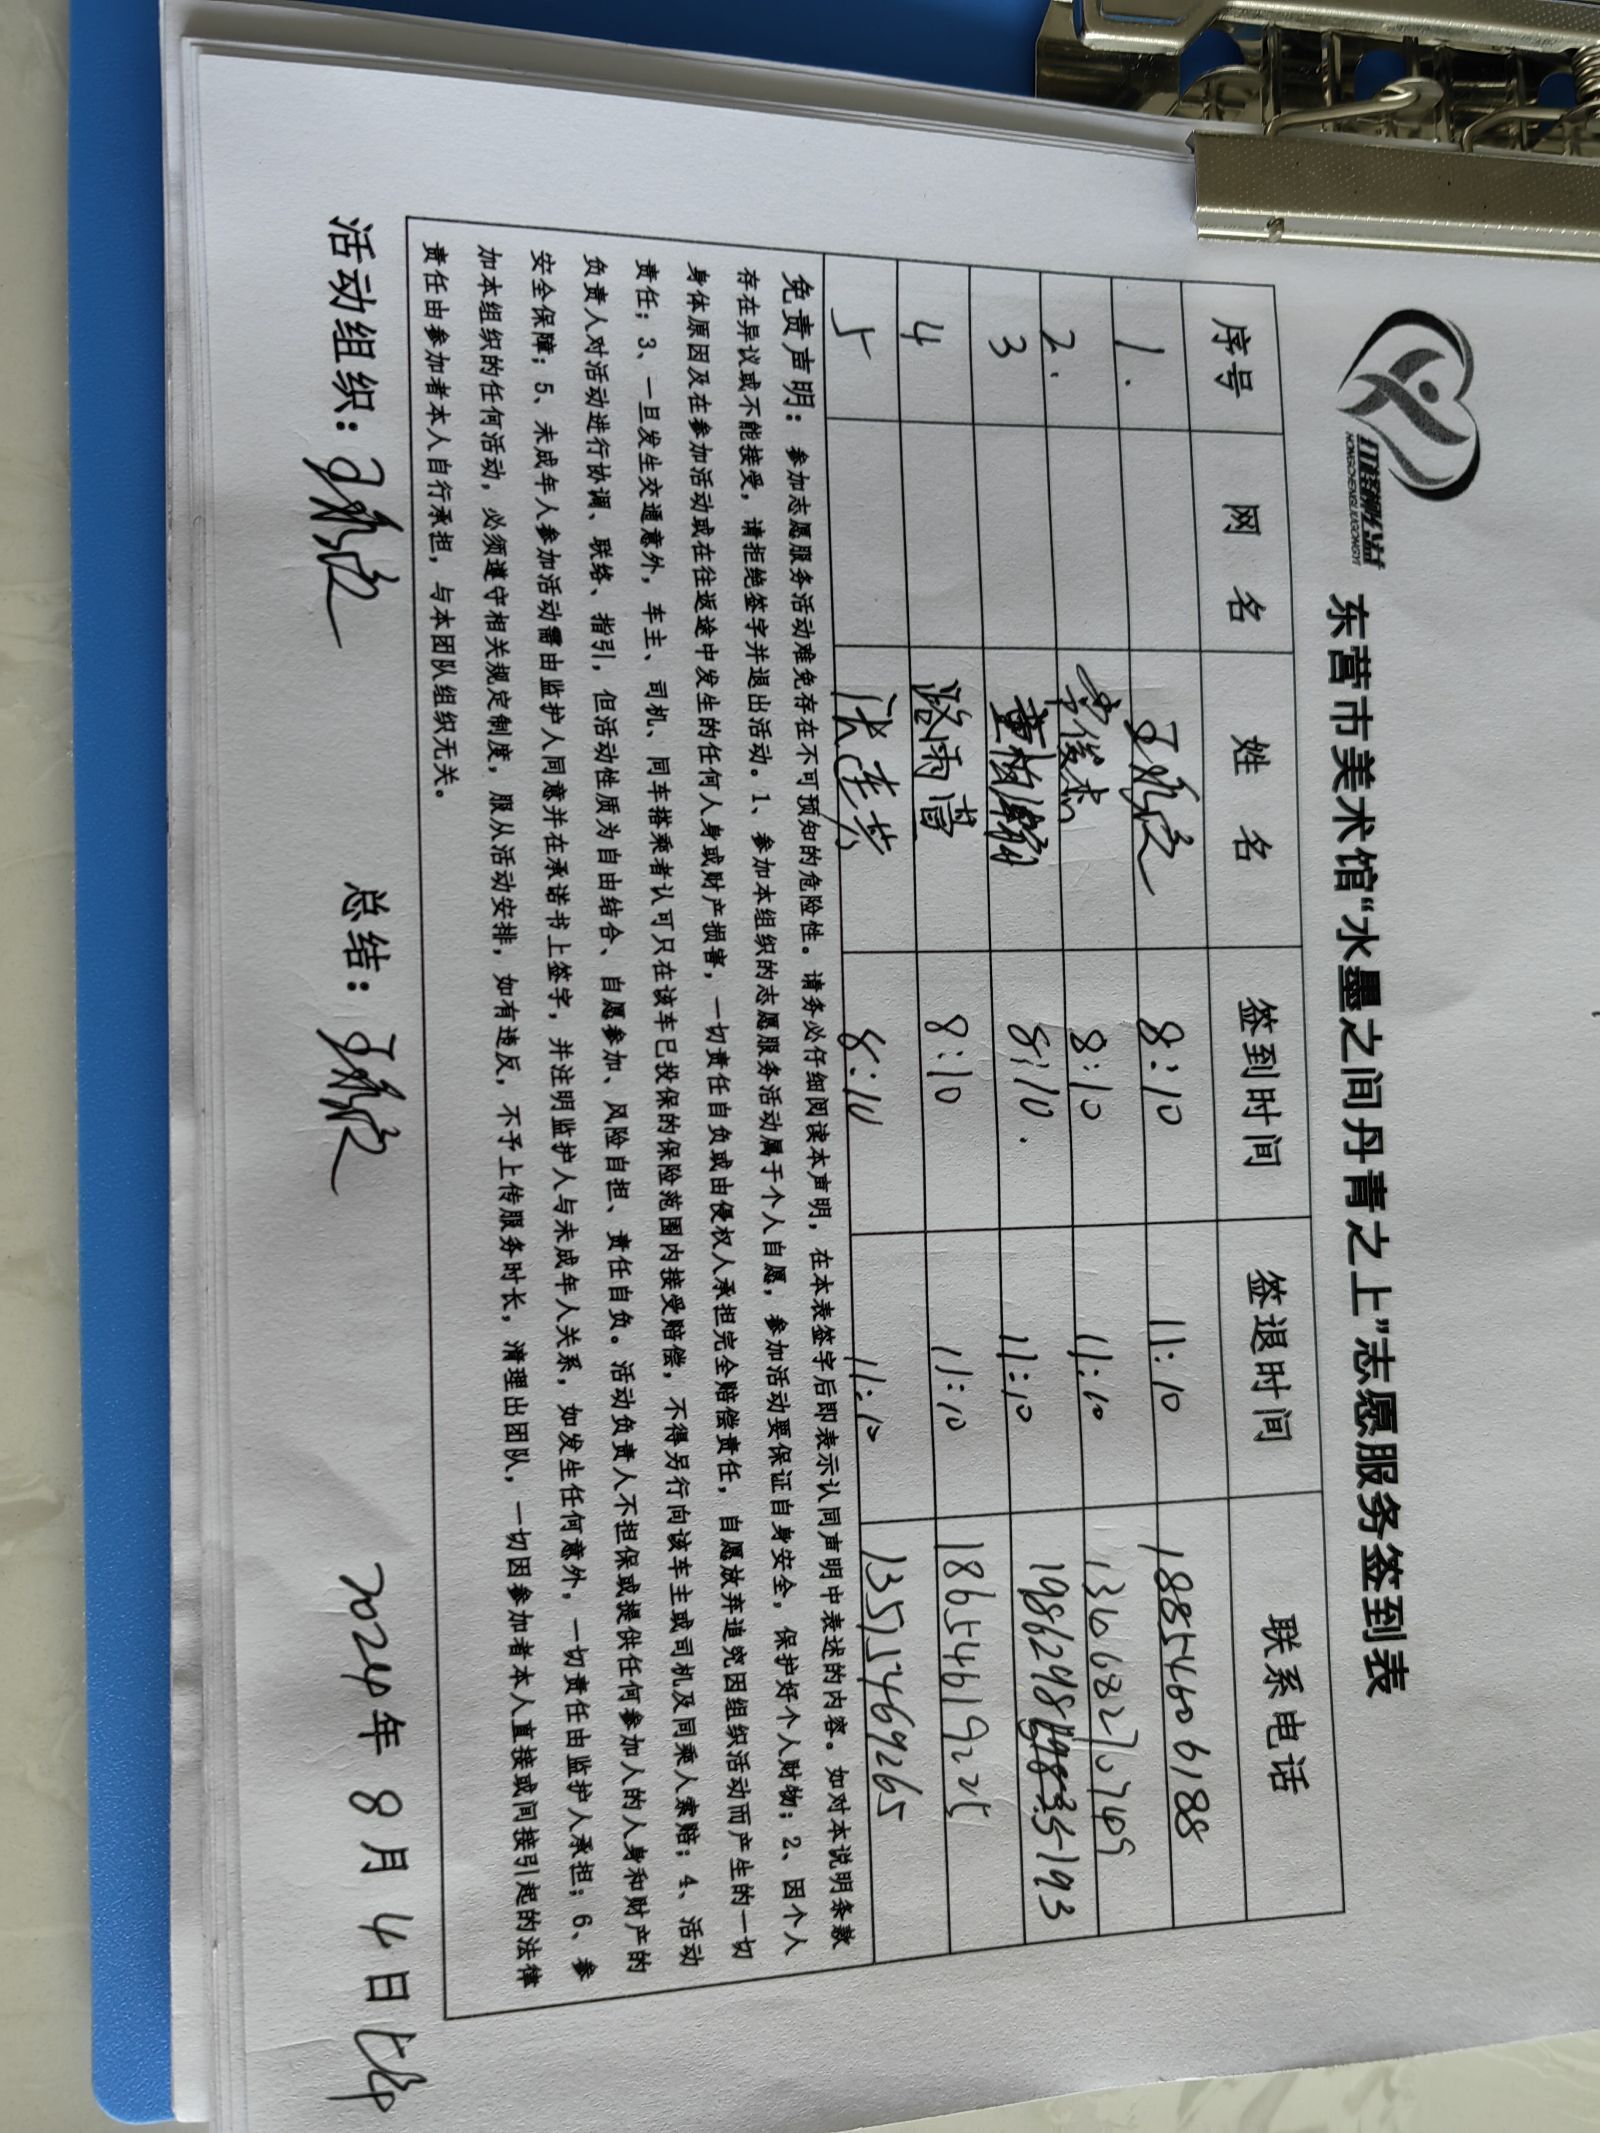 HONGCHENGYIJIAGONGYI
东营市美术馆“水墨之间丹青之上”志愿服务签到表
序号 网 名 姓 名 签到时间 签退时间 联系电话
1. 8:10 11:10 18854606188
2. 俊杰 8:10 11:10
3 董柏翰 8:10. 11:10 19862981
4 路雨萱 8:10 11:10 18654619225
5 8:10 11:10 13515469265
免责声明： 参加志愿服务活动难免存在不可预知的危险性。请务必仔细阅读本声明，在本表签字后即表示认同声明中表述的内容。如对本说明条款
存在异议或不能接受，请拒绝签字并退出活动。1、参加本组织的志愿服务活动属于个人自愿，参加活动要保证自身安全，保护好个人财物；2、因个人
身体原因及在参加活动或在往返途中发生的任何人身或财产损害，一切责任自负或由侵权人承担完全赔偿责任，自愿放弃追究因组织活动而产生的一切
责任；3、一旦发生交通意外，车主、司机、同车搭乘者认可只在该车已投保的保险范围内接受赔偿，不得另行向该车主或司机及同乘人索赔；4、活动
负责人对活动进行协调、联络、指引，但活动性质为自由结合、自愿参加、风险自担、责任自负。活动负责人不担保或提供任何参加人的人身和财产的
安全保障；5、未成年人参加活动需由监护人同意并在承诺书上签字，并注明监护人与未成年人关系，如发生任何意外，一切责任由监护人承担；6、参
加本组织的任何活动，必须遵守相关规定制度，服从活动安排，如有违反，不予上传服务时长，清理出团队，一切因参加者本人直接或间接引起的法律
责任由参加者本人自行承担，与本团队组织无关。
活动组织： 总结： 2024年 8月 4日上午